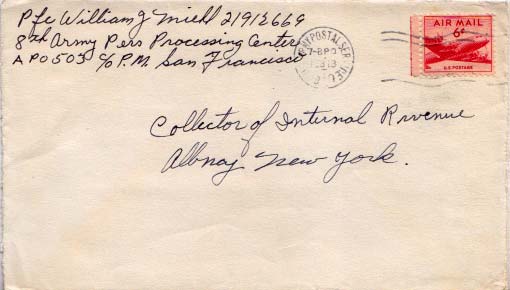 Pfc William J Miehl 21912669
8th Army Pers Processing Center
APO 503 c/o P.M. San Francisco
AIR MAIL
6¢
U.S. POSTAGE
Collector of Internal Revenue
Albnay New York.